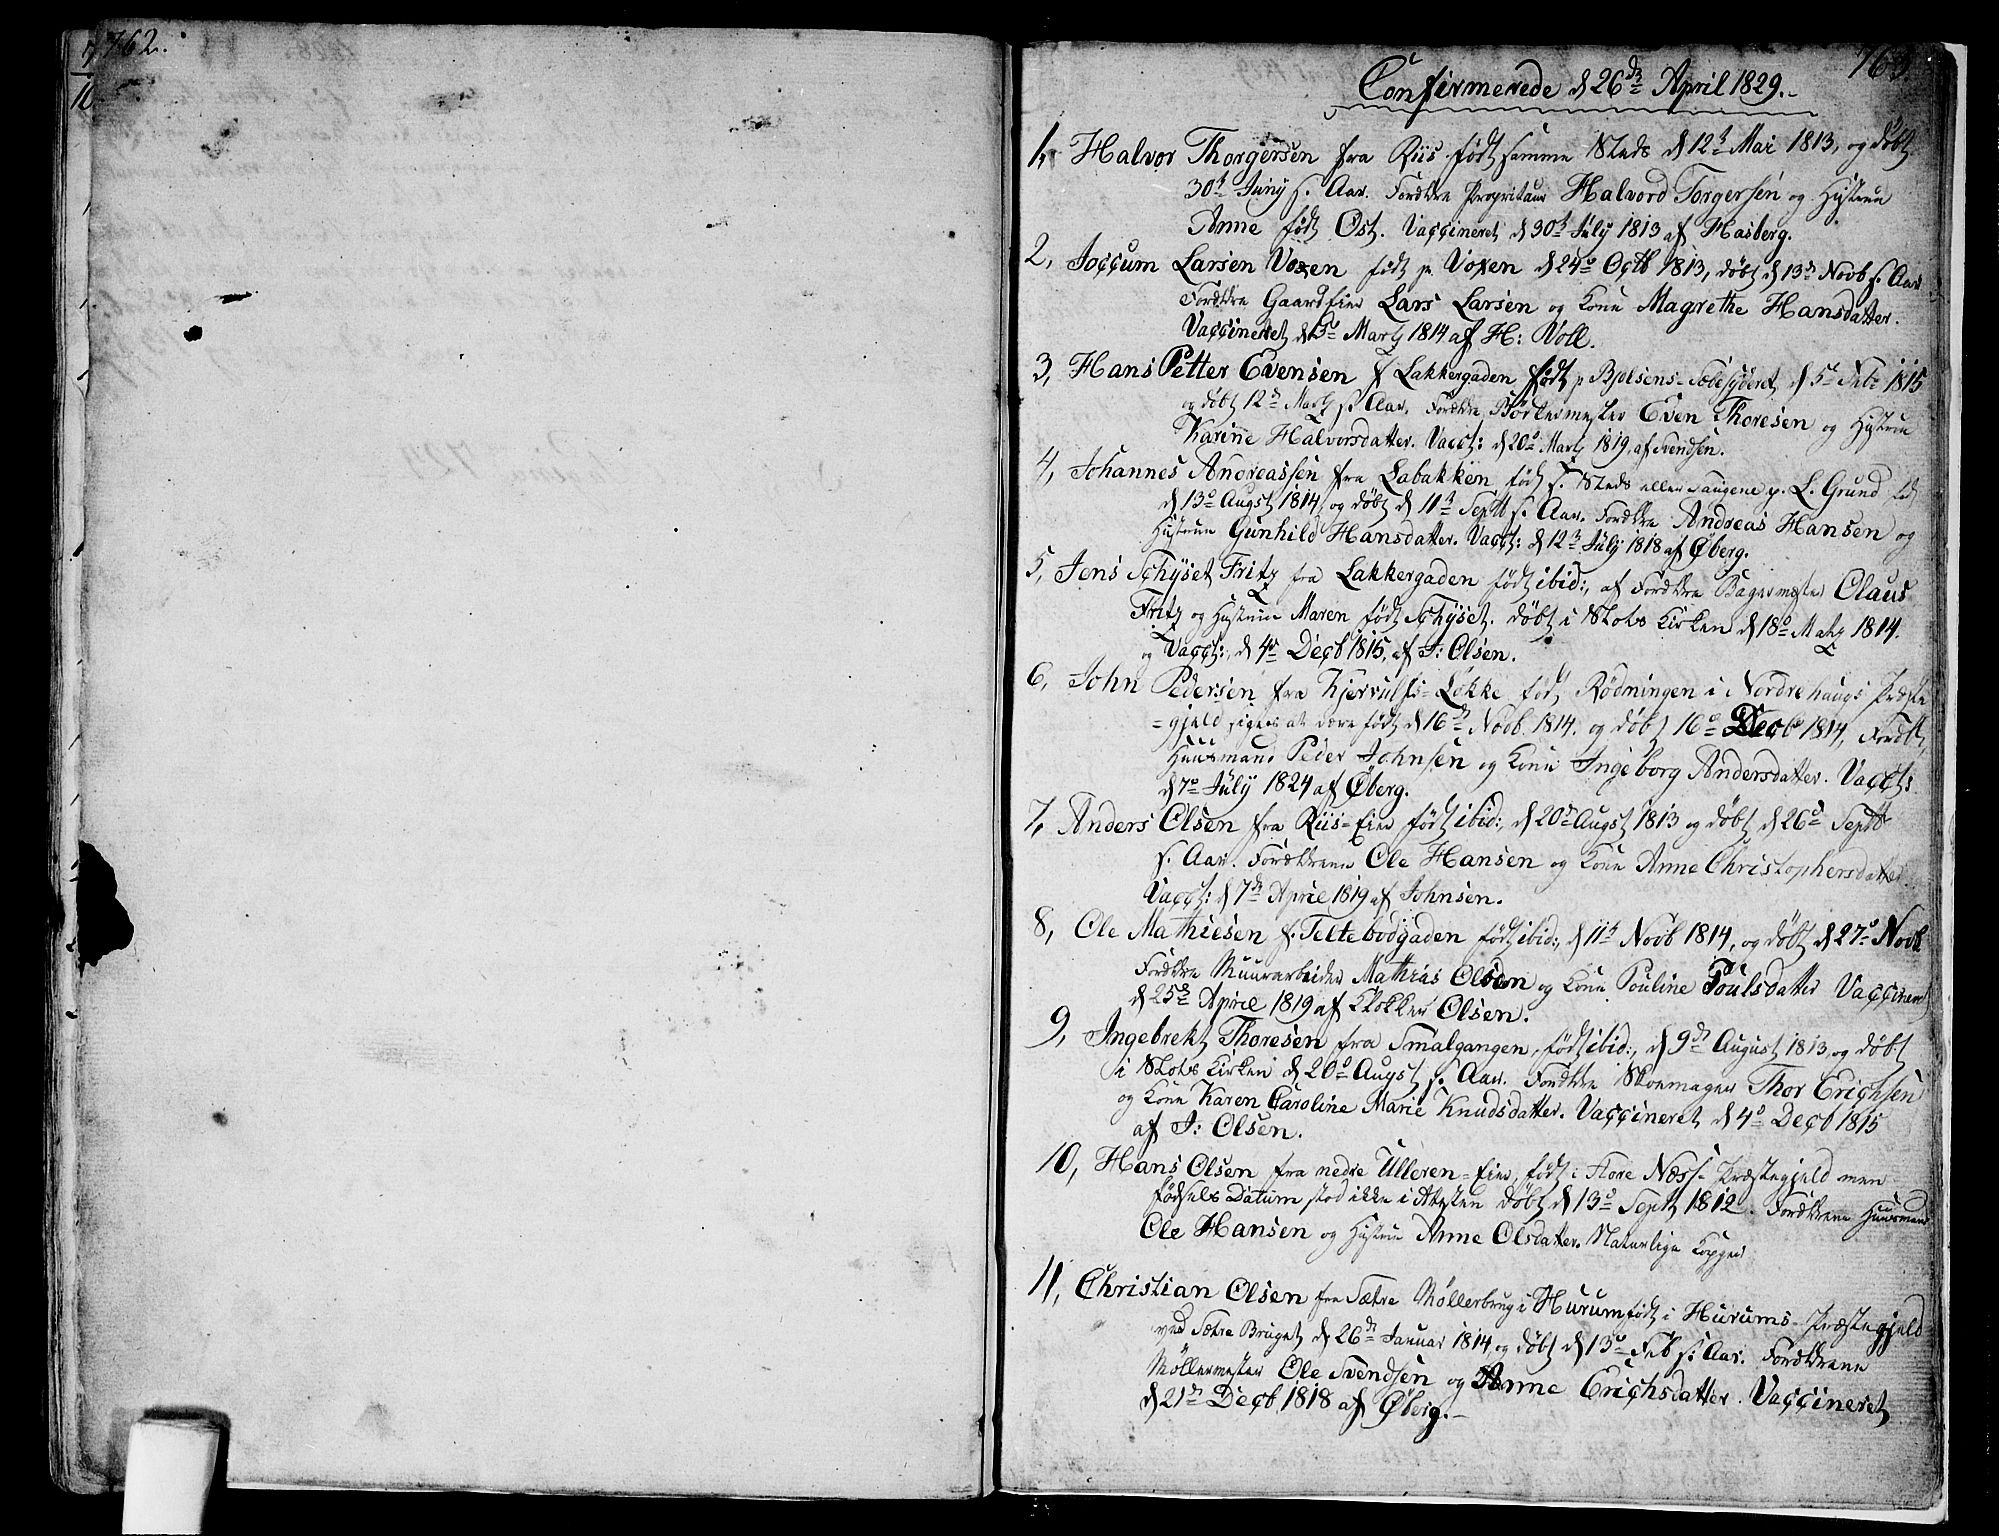 762.
763.
Confirmerede d 26de April 1829.-
1, Halvor Thorgersen fra Riis født samme Steds d 12t Mai 1813, og døbt
30t Juny s. Aar. Forældre Proprietair Halvord Torgersen og Hustrue
Anne født Ost. Vaccineret d 30t July 1813 af Hasberg.
2, Joccum Larsen Voxen født p. Voxen d 24de Octb 1813, døbt d 13de Novb s. Aar
Forældre Gaardeier Lars Larsen og Kone Magrethe Hansdatter.
Vaccineret d 13de Martz 1814 af H: Woll.
3, Hans Petter Evensen f. Lakkergaden født p. Bjølsens Sæbesyderet, d 5te Feb: 1815
og døbt 12de Martz s. Aar. Forældre Børstenmester Even Thoresen og Hustrue
Karine Halvorsdatter. Vacct: d 20de Martz 1819, af Svendsen.
4, Johannes Andreassen fra Labakken født s. Steds eller Saugene p. L. Grund
d 13de Augst 1814, og døbt d 11te Septb s. Aar. Forældre Andreas Hansen og
Hustrue Gunhild Hansdatter. Vacct: d 12te July 1818 af Øberg.
5, Jens Schyset Fritz fra Lakkergaden født ibid:, af Forældre Bagermester Claus
Fritz og Hustrue Maren født Schyset. døbt i Slots Kirken d 18de Matz 1814.
og Vacct:, d 4de Decb 1815, af J: Olsen.
6, John Pedersen fra Kjerulfs=Løkke født Rødningen i Nordrehaugs Præste
=gjeld siges at være født d 16de Novb. 1814. og døbt 16de Decb 1814, Forældre
Huusmand Peder Johnsen og Kone Ingeborg Andersdatter. Vacct:
d 7de July 1824 af Øberg.
7, Anders Olsen fra Riis=Eier født ibid:, d 20de Augst 1813 og døbt d 26de Septb
s. Aar. Forældrene Ole Hansen og Kone Anne Christophersdatter.
Vacct: d 7de April 1819 af Johnsen.
8, Ole Mathiesen f. Teltebodgaden født ibid:, d 11te Novb 1814, og døbt d 27de Novb
Forældre Muurarbeider Mathias Olsen og Kone Pouline Poulsdatter Vaccineret
d 25de April 1819 af Klokker Olsen.
9, Ingebrekt Thoresen fra Smalgangen, født ibid:, d 9de August 1813 og døbt
i Slots Kirken d 20de Augst s. Aar. Forældre Skoemager Thor Erichsen
og Kone Karen Caroline Marie Knudsdatter. Vaccineret d 4de Decb 1815
af J: Olsen.
10, Hans Olsen fra nedre Ulleren=Eier, født i Store Næss Præstegjeld men
fødsels Datum stod ikke i Attesten døbt d 13de Septb 1812. Forældrene Huusmand
Ole Hansen og Hustrue Anne Olsdatter. Naturlige Kopper
11, Christian Olsen fra Sætre Møllerbrug i Hurum født i Hurums Præstegjeld
ved Sætre Bruget d 26de Januar 1814, og døbt d 13de Feb s: Aar. Forældrene
Møllermester Ole Svendsen og Anne Erichsdatter. Vaccineret
d 21de Decb 1818 af Øberg.-